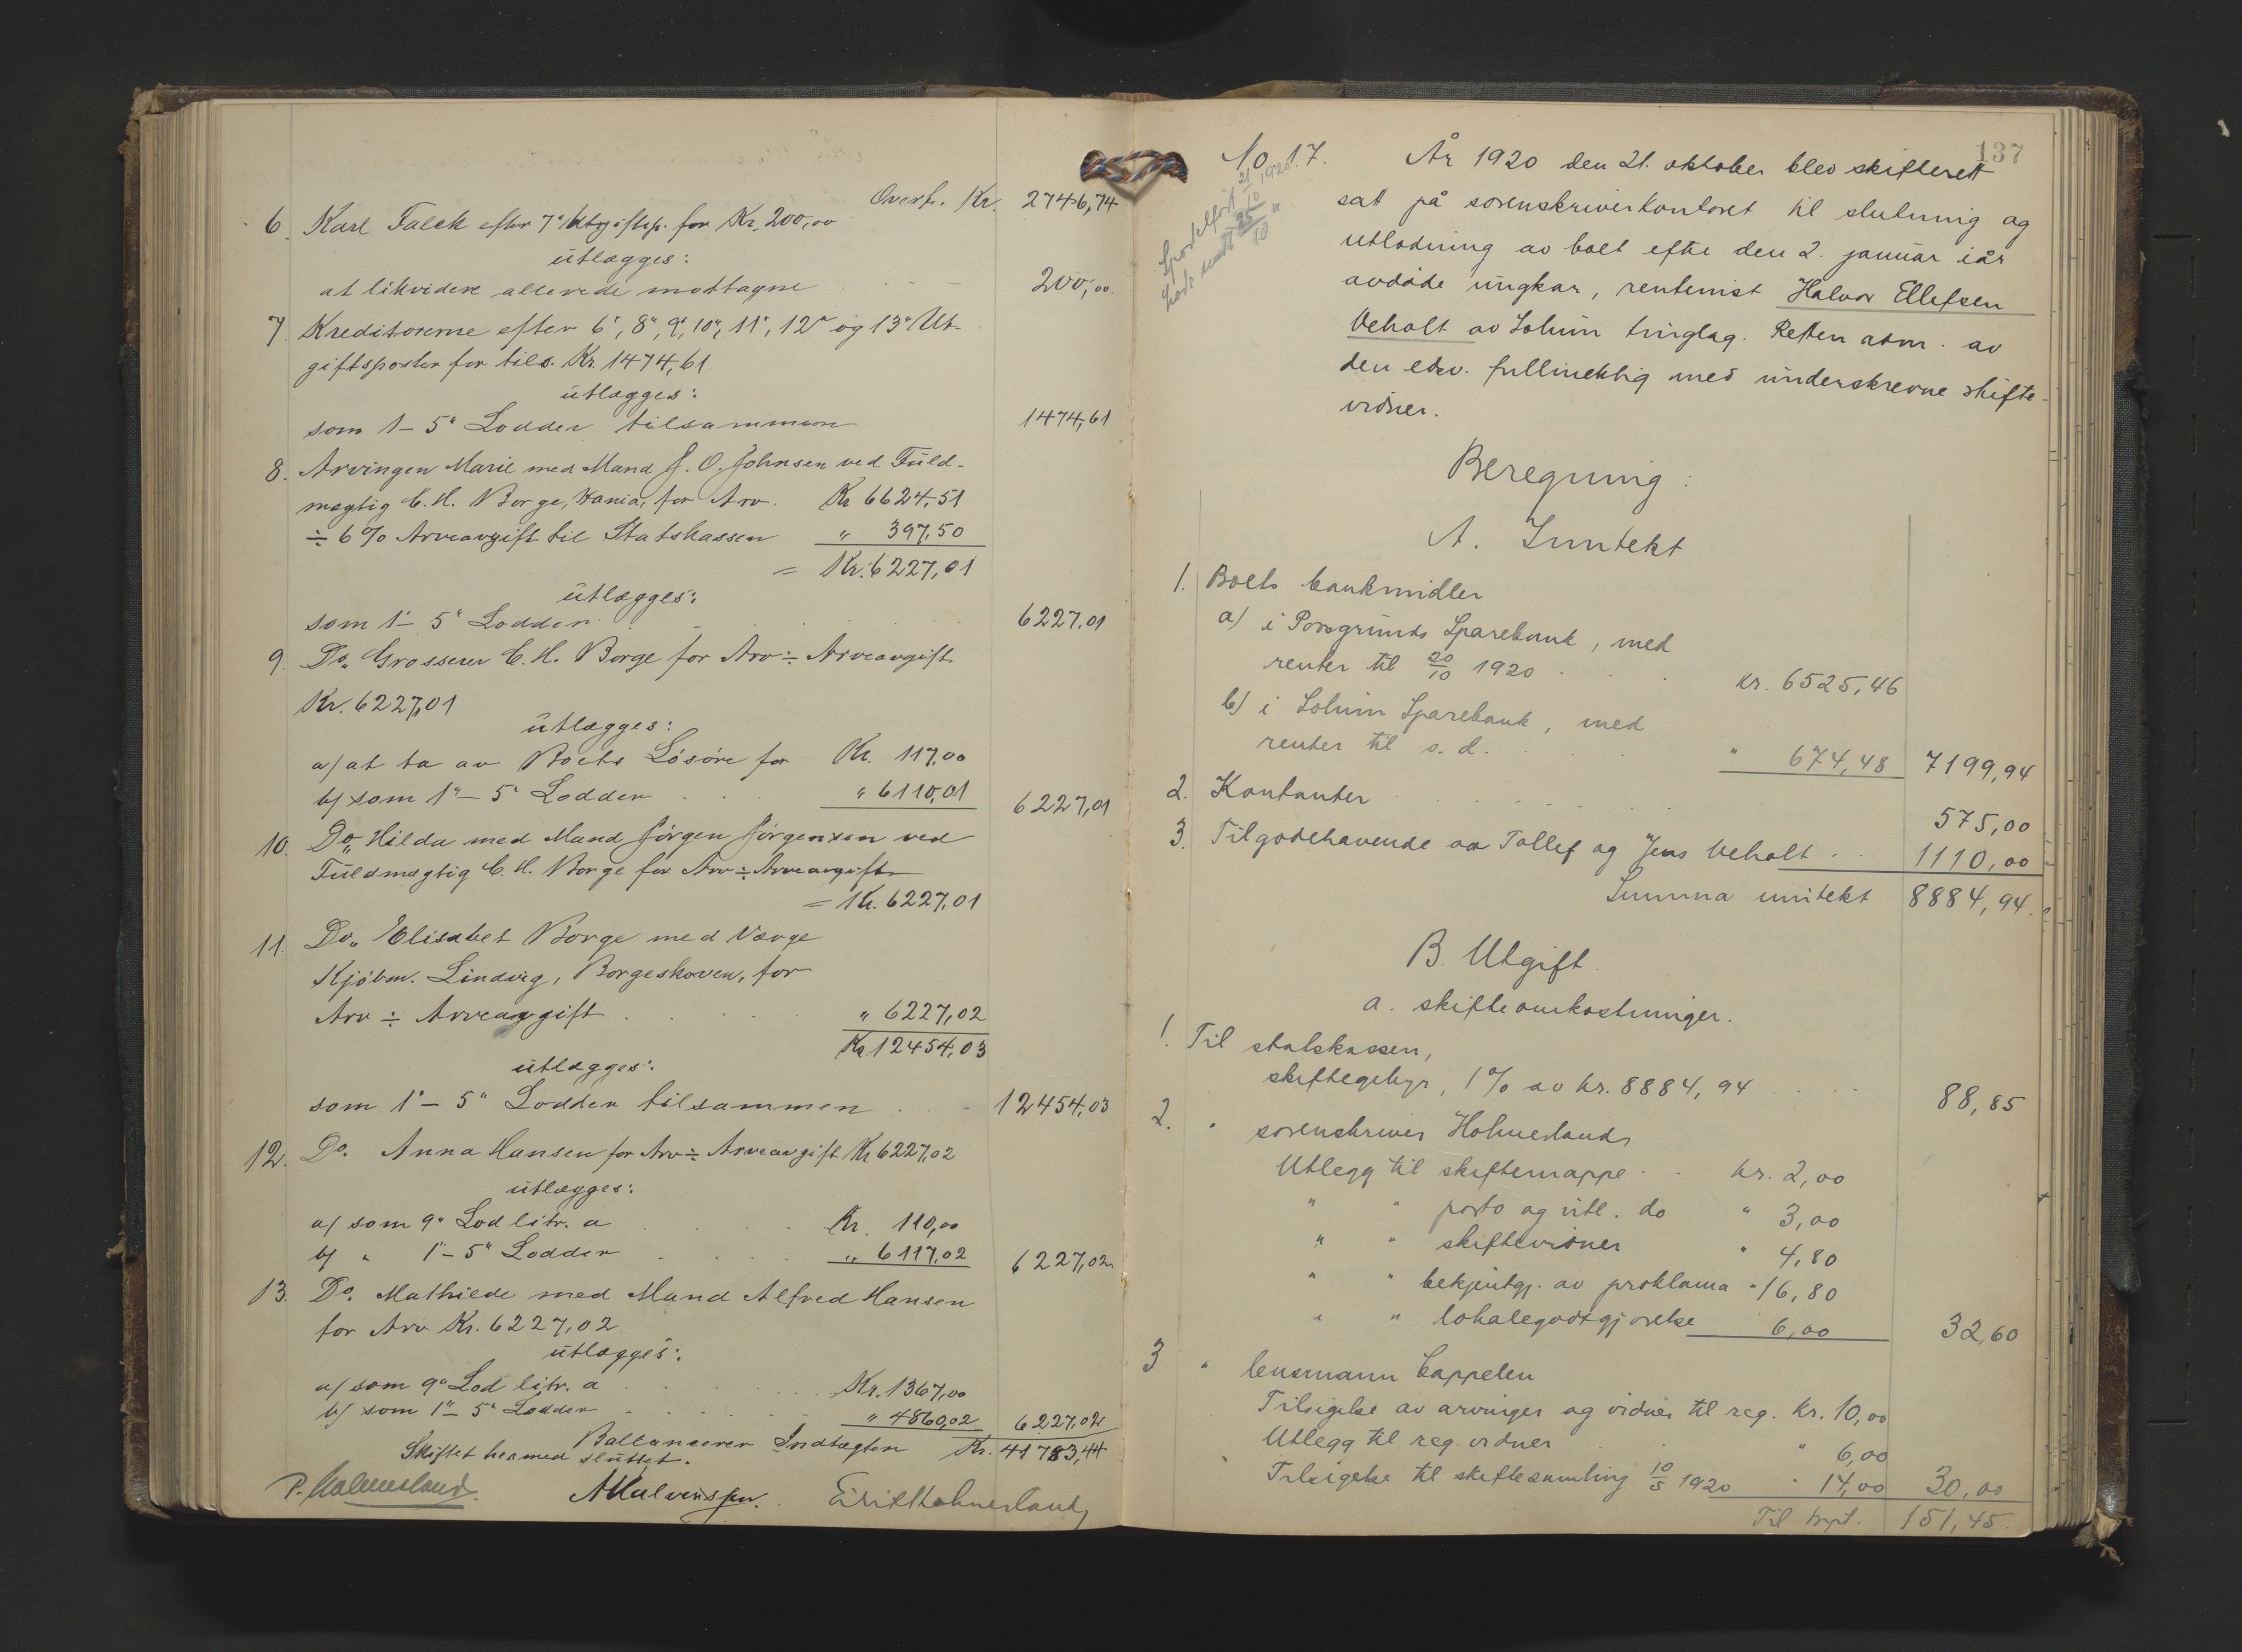 Overf. Kr. 2746,74
6. Karl Falck efter 7de Utgiftsp. for Kr. 200,00
utlægges:
at likvidere allerede mottagne 200,00
7. Kreditorerne efter 6", 8", 9", 10", 11", 12" og 13" Ut-
giftsposter for tils. Kr. 1474,61
utlægges:
som 1 - 5" Lodder tilsammen 1474,61
8. Arvingen Marie med Mand J. O. Johnsen ved Fuld-
mægtig C. H. Borge, Kania, for Arv. Kr 6624,51
÷ 6% Arveavgift til Statskassen " 397,50
= Kr. 6227,01
utlægges:
som 1" - 5" Lodder 6227,01
9. Do. Grosserer C. H. Borge for Arv ÷ Arveavgift
Kr. 6227,01
utlægges:
a) at ta av Boets Løsøre for Kr. 117,00
b) som 1" - 5" Lodder " 6110,01 6227,01
10. Do. Hilda med Mand Jørgen Jørgensen ved
Fuldmægtig C. H. Borge for Arv ÷ Arveavgift
= Kr. 6227,01
11. Do. Elisabet Borge med Værge
Kjøbm. Lindvig, Borgeskoven, for
Arv ÷ Arveavgift " 6227,02
Kr. 12454,03
utlægges:
som 1" - 5" Lodder tilsammen 12454,03
12. Do. Anna Hansen for Arv ÷ Arveavgift Kr 6227,02
utlægges:
a) som 9" Lod litr. a Kr. 110,00
b) " 1" - 5" Lodder " 6117,02 6227,02
13. Do. Mathilde med Mand Alfred Hansen
for Arv Kr. 6227,02
utlægges:
a) som 9" Lod litr. a Kr. 1367,00
b) som 1" - 5" Lodder " 4860,02 6227,02
Ballancerer Indtægten Kr. 41783,44
Skiftet hermed sluttet.
P. Holmesland. A Halvorsen. Eirik Holmesland
137
No 17.
Sportelført 21/10 1920.
År 1920 den 21. oktober blev skifterett
satt på sorenskriverkontoret til slutning og
utlodning av boet efter den 2. januar iår
avdøde ungkar, rentenist Halvor Ellefsen
Veholt av Solum tinglag. Retten adm. av
den edsv. fullmektig med underskrevne skifte-
vidner.
Beregning:
A. Inntekt
1. Boets bankmidler
a) i Porsgrunds Sparebank, med
renter til 20/10 1920 kr. 6525,46
b) i Solum Sparebank, med
renter til s. d. " 674,48 7199,94
2. Kontanter 575,00
3. Tilgodehavende av Tollef og Jens Veholt 1110,00
Summa inntekt 8884,94
B. Utgift.
a. skifteomkostninger.
1. Til statskassen,
skiftegebyr, 1% av kr. 8884,94 88,85
2. " sorenskriver Holmesland,
Utlegg til skiftemappe kr. 2,00
" " porto og vitl. do " 3,00
" " skiftevidner " 4,80
" " bekjentgj. av proklama " 16,80
" " lokalegodtgjørelse 6,00 32,60
3 " lensmann Cappelen
Tilsigelse av arvinger og vidner til reg. kr. 10,00
Utlegg til reg. vidner " 6,00
Tilsigelse til skiftesamling 10/5 1920 " 14,00 30,00
Til trpt. 151,45.